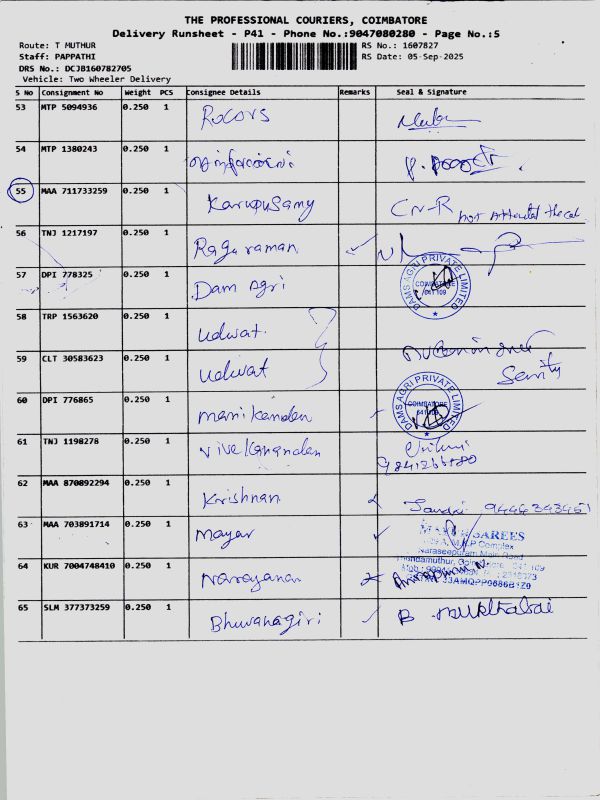 THE PROFESSIONAL COURIERS, COIMBATORE
Delivery Runsheet - P41 - Phone No.:9047080280 - Page No.:5
Route: T MUTHUR RS No.: 1607827
Staff: PAPPATHI RS Date: 05-Sep-2025
DRS No.: DCJB160782705
Vehicle: Two Wheeler Delivery
S No Consignment No Weight PCS Consignee Details Remarks Seal & Signature
53 MTP 5094936 0.250 1
54 MTP 1380243 0.250 1
55 MAA 711733259 0.250 1 Karupusamy CN-R not Attended the call
56 TNJ 1217197 0.250 1 Raguraman
57 DPI 778325 0.250 1 Dam Agri DAMS AGRI PRIVATE LIMITED COIMBATORE 641 109
58 TRP 1563620 0.250 1 udwat.
59 CLT 30583623 0.250 1 udwat
60 DPI 776865 0.250 1 manikandan DAMS AGRI PRIVATE LIMITED COIMBATORE
61 TNJ 1198278 0.250 1 vivekanandan
62 MAA 870892294 0.250 1 Krishnan
63 MAA 703891714 0.250 1 mayar SAREES
Naraseepuram Main Road
64 KUR 7004748410 0.250 1 Narayanan
65 SLM 377373259 0.250 1 Bhuvanagiri B